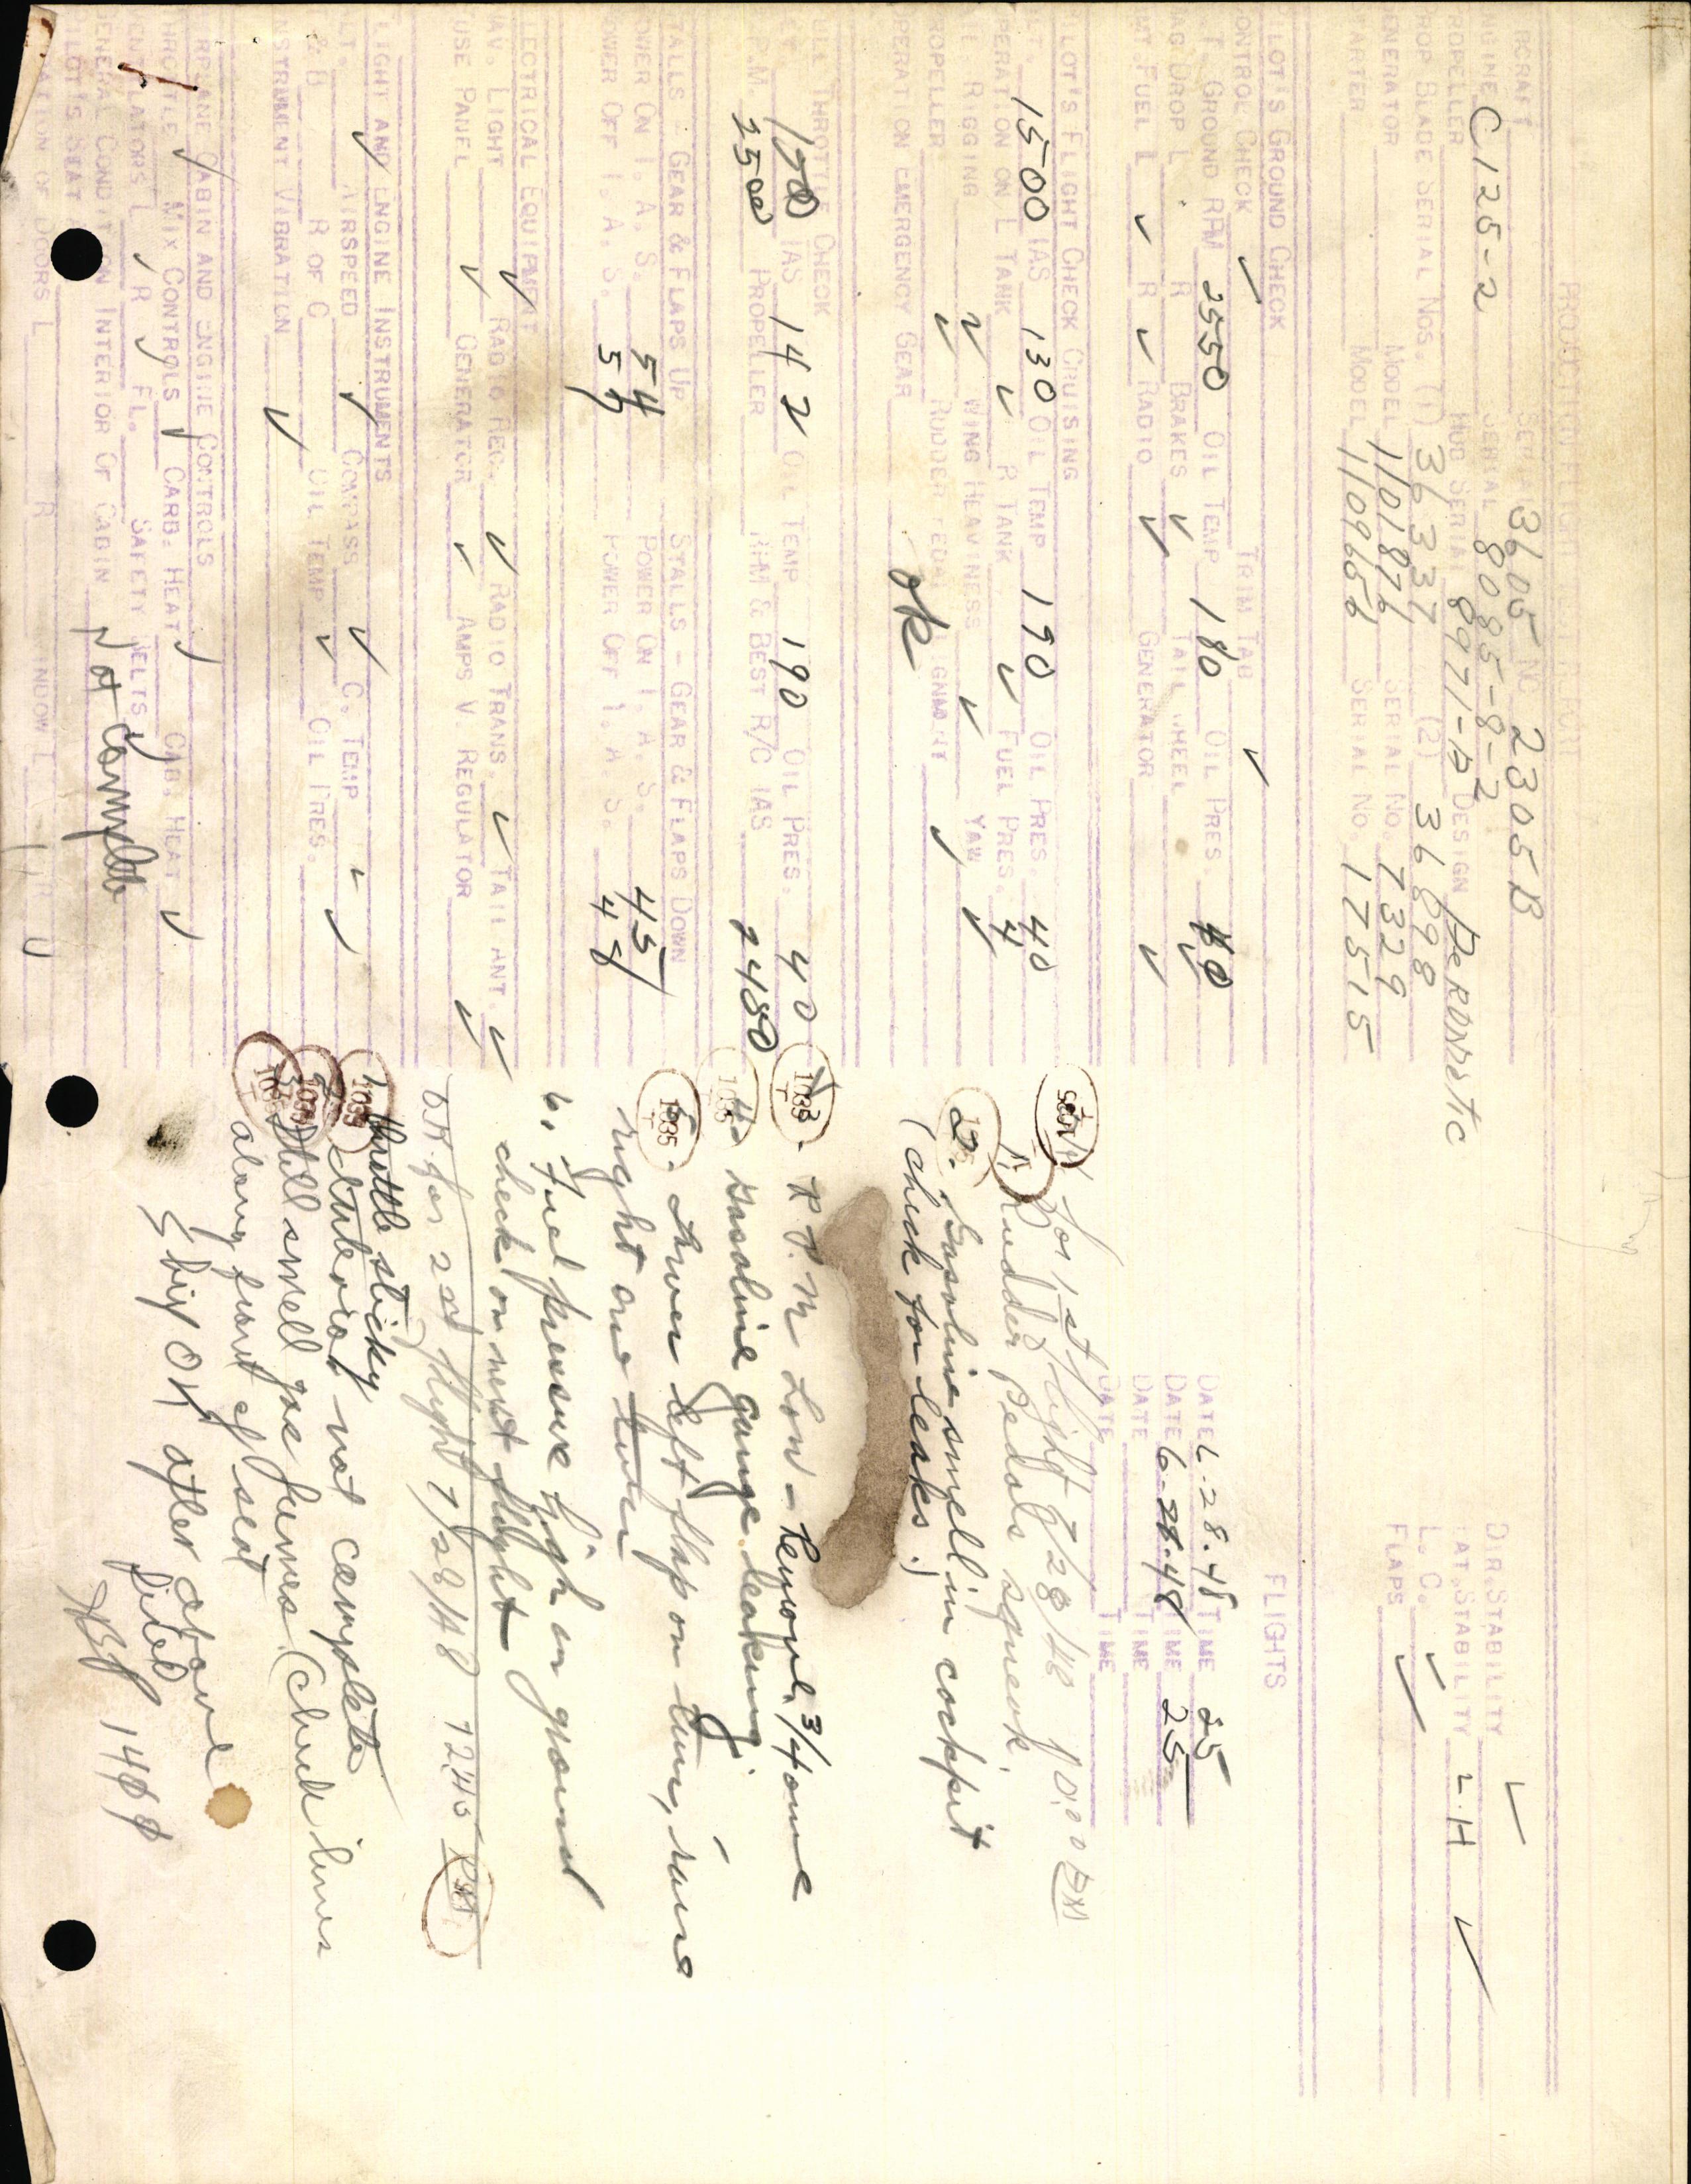 PRODUCTION FLIGHT TEST REPORT
AIRCRAFT SERIAL 3605 NC 2305B
ENGINE C125-2 SERIAL 80935-8-2
PROPELLER HUB SERIAL 8971-D DESIGN Aeromatic
PROP BLADE SERIAL NOS. (1) 36337 (2) 36898
GENERATOR MODEL 1101876 SERIAL NO. 7329
STARTER MODEL 1109656 SERIAL NO. 17515
DIR. STABILITY ✓
LAT. STABILITY L.H ✓
L. C. ✓
FLAPS ✓
PILOT'S GROUND CHECK
CONTROL CHECK ✓ TRIM TAB ✓
GROUND RPM 2550 OIL TEMP 180 OIL PRES.
MAG DROP L R BRAKES ✓ TAIL WHEEL ✓
FUEL L ✓ R ✓ RADIO ✓ GENERATOR ✓
FLIGHTS
DATE 6.28.48 TIME 25
DATE 6.28.48 TIME 25
DATE TIME
DATE TIME
PILOT'S FLIGHT CHECK CRUISING
ALT. 1500 IAS 130 OIL TEMP 190 OIL PRES. 40
OPERATION ON L TANK ✓ R TANK ✓ FUEL PRES. 4
RIGGING ✓ WING HEAVINESS ✓ YAW ✓
PROPELLER ✓ RUDDER PEDAL ALIGNMENT ✓
OPERATION EMERGENCY GEAR ok
FULL THROTTLE CHECK
IAS 142 OIL TEMP 190 OIL PRES. 40
R.P.M. 2500 PROPELLER RPM & BEST R/C IAS 2480
STALLS - GEAR & FLAPS UP STALLS - GEAR & FLAPS DOWN
POWER ON I. A. S. 54 POWER ON I. A. S. 45
POWER OFF I. A. S. 57 POWER OFF I. A. S. 48
ELECTRICAL EQUIPMENT
NAV. LIGHT ✓ RADIO REC. ✓ RADIO TRANS. ✓ TAIL ANT. ✓
FUSE PANEL ✓ GENERATOR ✓ AMPS V. REGULATOR ✓
FLIGHT AND ENGINE INSTRUMENTS
ALT. ✓ AIRSPEED ✓ COMPASS ✓ C. TEMP ✓
R OF C OIL TEMP ✓ OIL PRES. ✓
INSTRUMENT VIBRATION ✓
AIRPLANE CABIN AND ENGINE CONTROLS
THROTTLE ✓ MIX CONTROLS ✓ CARB. HEAT ✓ CAB. HEAT ✓
VENTILATORS L ✓ R ✓ FL. SAFETY BELTS ✓
GENERAL CONDITION INTERIOR OF CABIN Not Complete
PILOT'S SEAT
OPERATION OF DOORS L R WINDOW L R ✓
for 1st flight 7/28/48 10:00
1. Rudder Pedals squeak.
2. Gasoline smell in cockpit
(check for leaks.)
3. R.P.M Low - Remove 3/4 ounce
4. Gasoline gauge leaking.
5. Lower left flap on turn, raise
right one turn
6. Fuel pressure high on ground
check on next flight
OK for 2nd flight 7/28/48 1240 PM
1. throttle sticky
2. Interior not complete
3. Still smell gas fumes (Check lines
along front of seat
Ship OK after above